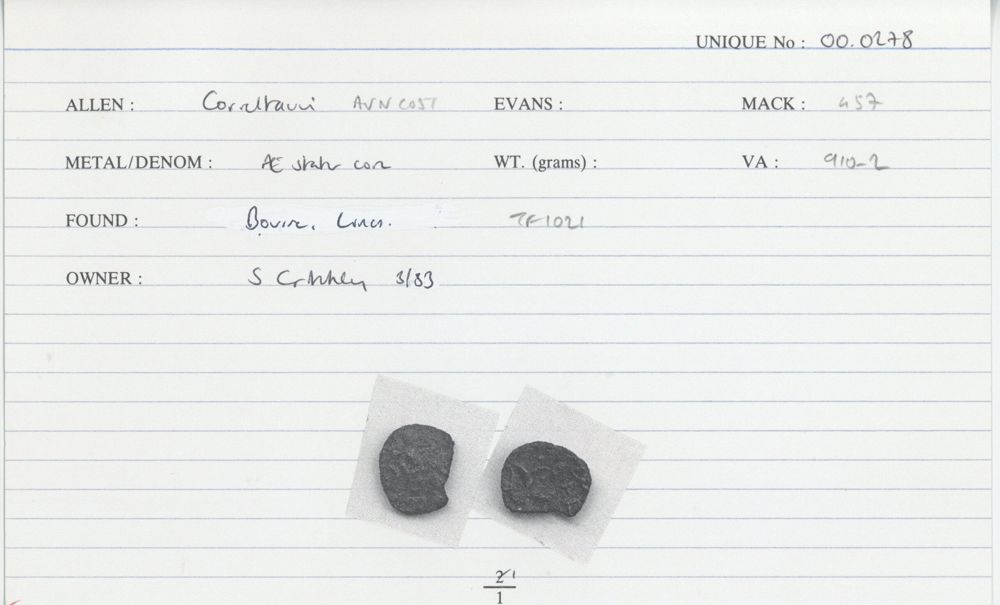 UNIQUE No : 00.0278
ALLEN : Corieltauvi AVN COST EVANS : MACK : 457
METAL/DENOM : Æ stater core WT. (grams) : VA : 910-2
FOUND : Bourne, Lincs. TF1021
OWNER : S Critchley 3/83
21
1